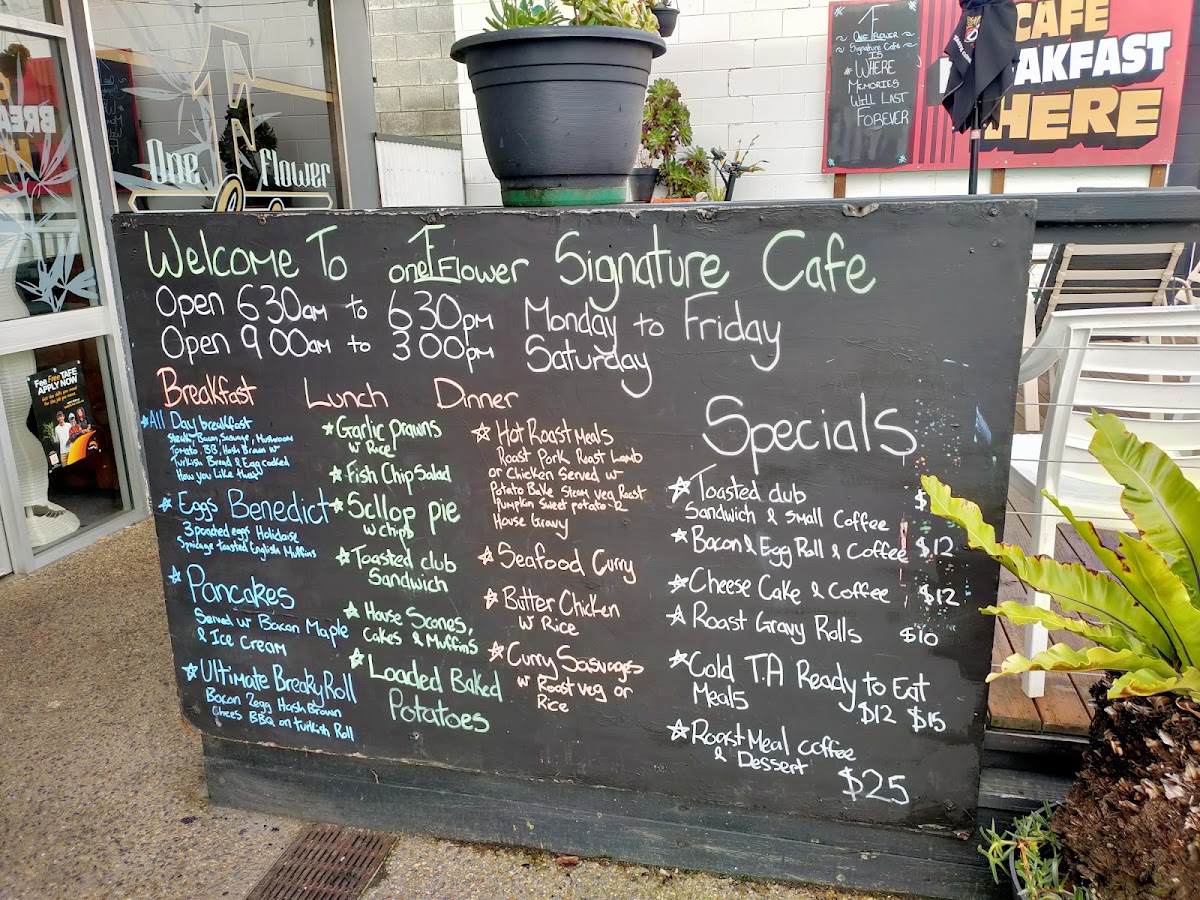 One Flower
Fee Free TAFE
APPLY NOW
1F
~ ONE FLOWER ~
~ Signature Cafe ~
IS
* WHERE
MEMORIES
WILL LAST
FOREVER
CAFE
BREAKFAST
HERE
Welcome To one 1F Flower Signature Cafe
Open 6 30am to 6 30pm Monday to Friday
Open 9 00am to 3 00pm Saturday
Breakfast
All Day breakfast
Steak, Bacon, Sausage, Mushroom
Tomato, BB, Hash Brown w
Turkish Bread & Egg cooked
How you Like them
Eggs Benedict
3 poached eggs Holidaise
Spinage toasted English Muffins
Pancakes
Served w Bacon Maple
& Ice Cream
Ultimate Breaky Roll
Bacon 2egg Hash Brown
Chees BBQ on turkish Roll
Lunch
Garlic prawns
w Rice
Fish Chip Salad
Scllop pie
w chips
Toasted club
Sandwich
House Scones,
Cakes & Muffins
Loaded Baked
Potatoes
Dinner
Hot Roast Meals
Roast Pork Roast Lamb
or Chicken Served w
Potato Bake Steam Veg Roast
Pumpkin Sweet potato &
House Gravy
Seafood Curry
Butter Chicken
w Rice
Curry Sasuages
w Roast veg or
Rice
Specials
Toasted club $
Sandwich & Small Coffee
Bacon & Egg Roll & Coffee $12
Cheese Cake & Coffee $12
Roast Gravy Rolls $10
Cold T.A Ready to Eat
Meals $12 $15
Roast Meal coffee
& Dessert $25